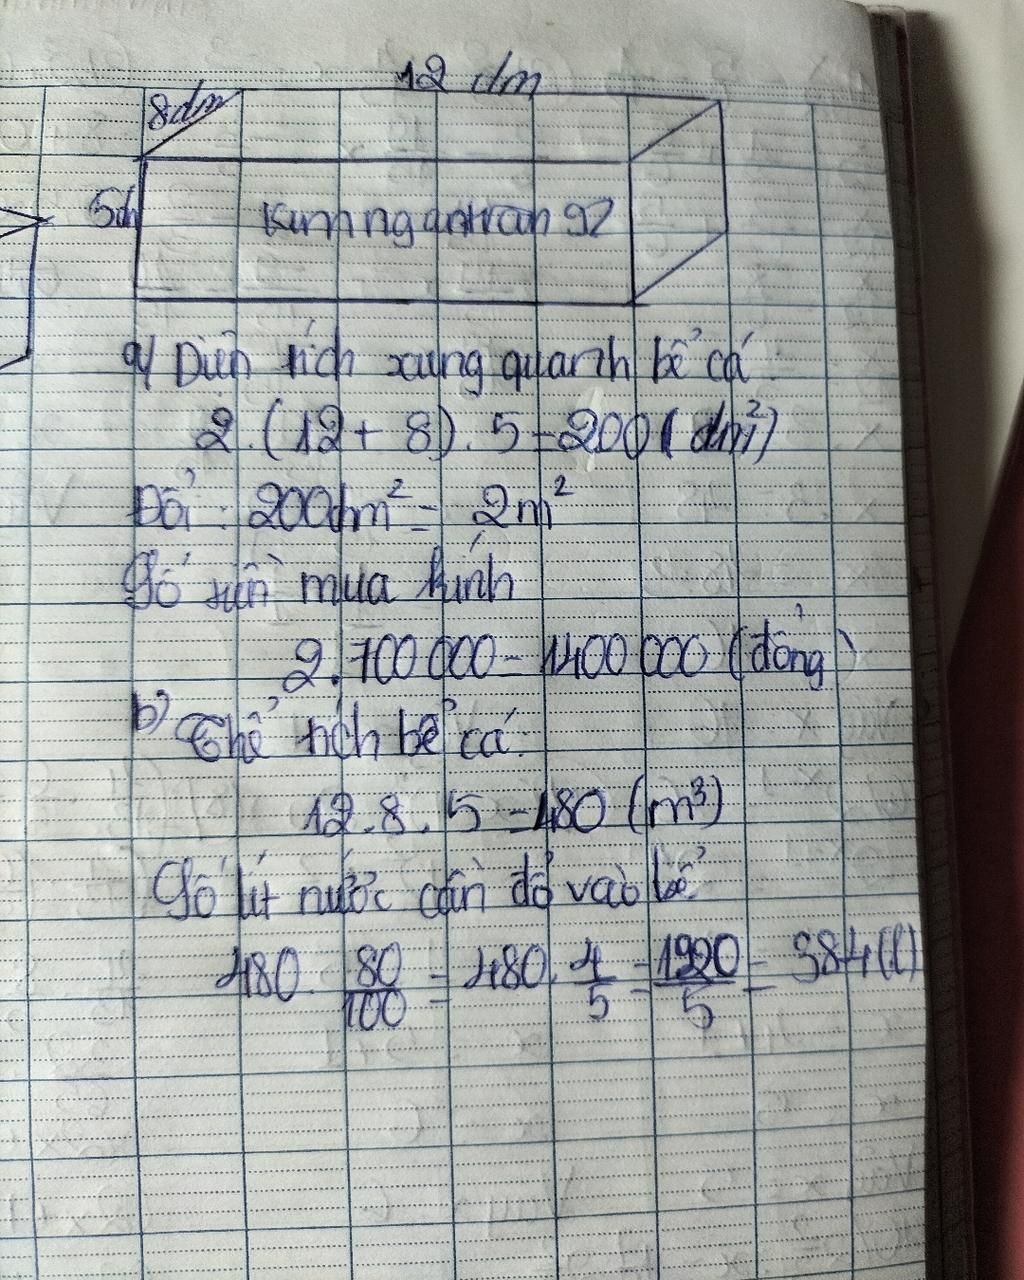 12 dm
8dm
5d
kimngantran 92
a) Diện tích xung quanh bể cá:
2.(12+ 8). 5 = 200 ( dm²)
Đổi: 200dm² = 2m²
Số tiền mua kính
2.700 000 = 1400 000 (đồng)
b) Thể tích bể cá:
12.8. 5 = 480 (m³)
Số lít nước cần đổ vào bể
480. 80/100 = 480. 4/5 = 1920/5 = 384(l)